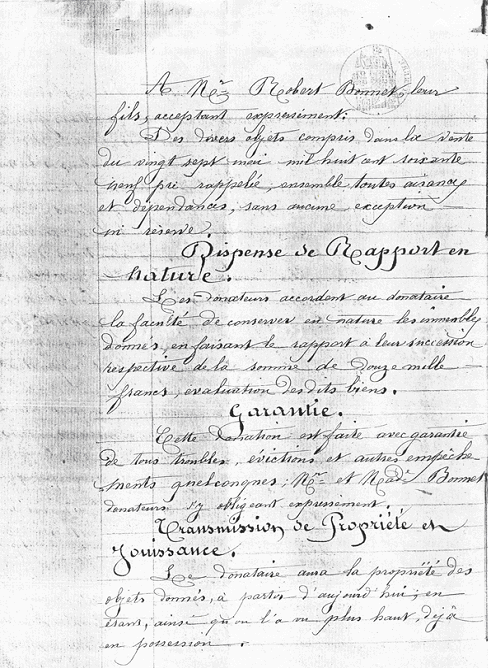 A Mr Robert Bonnet, leur
fils, acceptant expressément:
Des divers objets compris dans la vente
du vingt sept mai mil huit cent soixante
neuf pré rappelée, ensemble toutes aisances
et dépendances, sans aucune exception
ni réserve.
Dispense de Rapport en
Nature.
Les donateurs accordent au donataire
la faculté de conserver en nature les immeubles
donnés, en faisant le rapport à leur succession
respective de la somme de douze mille
francs, évaluation des dits biens.
Garantie.
Cette donation est faite avec garantie
de tous troubles, évictions et autres empêche
ments quelconques; Mr et Made Bonnet
donateurs s'y obligeant expressément.
Transmission de Propriété et
Jouissance.
Le donataire aura la propriété des
objets donnés, à partir d'aujourd'hui; en
étant, ainsi qu'on l'a vu plus haut, déjà
en possession.